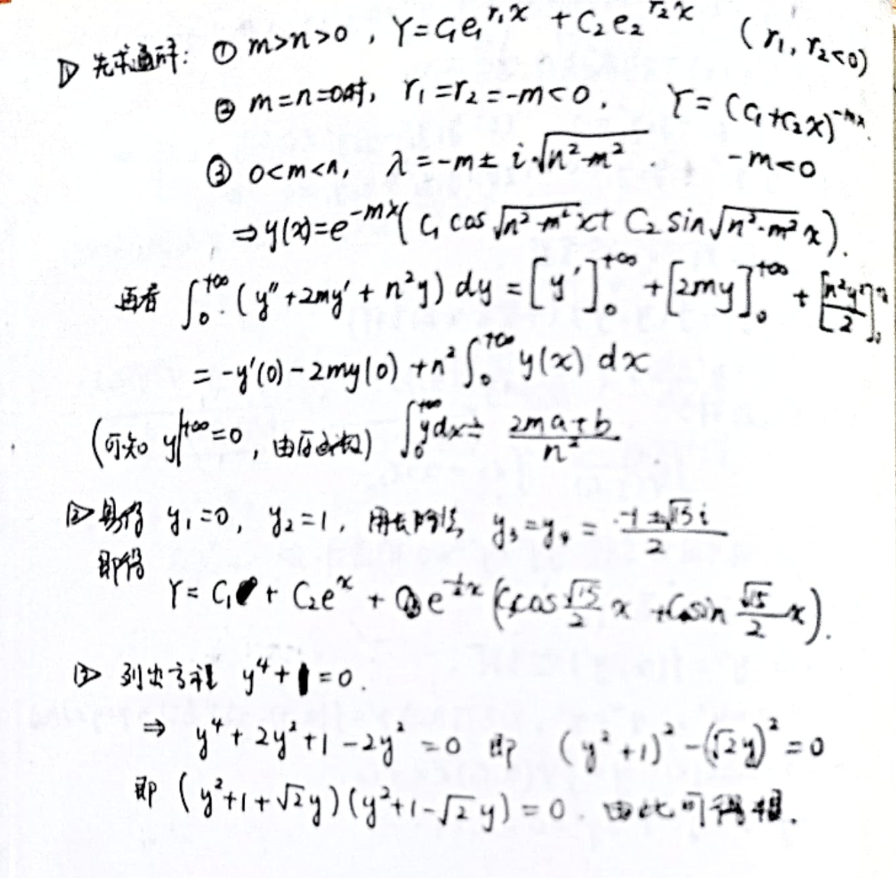 1▷ 先求通解: ① m>n>0, Y=C₁e₁^{r₁x} + C₂e₂^{r₂x} (r₁, r₂<0)
② m=n=0时, r₁=r₂=-m<0, Y=(C₁+C₂x)^{-mx}
③ 0<m<n, λ=-m± i√(n²-m²). -m<0
⇒ y(x)=e^{-mx}(C₁ cos √(n²-m²) x + C₂ sin √(n²-m²) x).
再看 ∫₀^{+∞} (y''+2my'+n²y) dy = [y']₀^{+∞} + [2my]₀^{+∞} + [n²y²/2]₀
= -y'(0) - 2my(0) + n² ∫₀^{+∞} y(x) dx
(可知 y|^{+∞}=0, 由) ∫₀^{+∞} y dx = (2ma+b)/n².
2▷ 易得 y₁=0, y₂=1, 用长除法, y₃=y₄= (-1±√15 i)/2
即得
Y= C₁ + C₂e^x + e^{-½x} (C₃cos (√15/2) x + C₄sin (√15/2) x).
3▷ 列出方程 y⁴+1=0.
⇒ y⁴+2y²+1-2y²=0 即 (y²+1)²-(√2y)²=0
即 (y²+1+√2y)(y²+1-√2y)=0. 由此可得根.